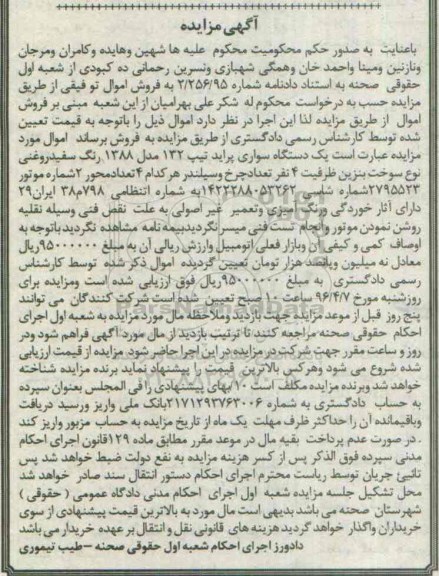 آگهی مزایده
باعنایت به صدور حکم محکومیت محکوم علیه ها شهین وهایده وکامران ومرجان
ونازنین ومینا واحمد خان وهمگی شهبازی ونسرین رحمانی ده کبودی از شعبه اول
حقوقی صحنه به استناد دادنامه شماره ۳/۲۵۶/۹۵ به فروش اموال تو قیفی از طریق
مزایده حسب به درخواست محکوم له شکر علی بهرامیان از این شعبه مبنی بر فروش
اموال از طریق مزایده لذا این اجرا در نظر دارد اموال ذیل را باتوجه به قیمت تعیین
شده توسط کارشناس رسمی دادگستری از طریق مزایده به فروش برساند اموال مورد
مزایده عبارت است یک دستگاه سواری پراید تیپ ۱۳۲ مدل ۱۳۸۸ رنگ سفیدروغنی
نوع سوخت بنزین ظرفیت ۴ نفر تعدادچرخ وسیلندر هر کدام ۴تعدادمحور ۲شماره موتور
۲۷۹۵۵۲۳شماره شاسی ۱۴۲۲۲۸۸۰۵۳۲۶۲به شماره انتظامی ۷۹۸م۳۸ ایران۲۹
دارای آثار خوردگی ورنگ آمیزی وتعمیر غیر اصولی به علت نقص فنی وسیله نقلیه
روشن نمودن موتور وانجام تست فنی میسر نگردیدبیمه نامه مشاهده نگردید باتوجه به
اوصاف کمی و کیفی آن وبازار فعلی اتومبیل وارزش ریالی آن به مبلغ ۹۵۰۰۰۰۰۰ریال
معادل نه میلیون وپانصد هزار تومان تعیین گردیده اموال ذکر شده توسط کارشناس
رسمی دادگستری به مبلغ ۹۵۰۰۰۰۰۰ریال فوق ارزیابی شده است ومزایده برای
روزشنبه مورخ ۹۶/۴/۷ ساعت ۱۰ صبح تعیین شده است شرکت کنندگان می توانند
پنج روز قبل از موعد مزایده جهت بازدید وملاحظه مال مورد مزایده به شعبه اول اجرای
احکام حقوقی صحنه مراجعه کنند تا ترتیب بازدید از مال مورد آگهی فراهم شود ودر
روز و ساعت مقرر جهت شرکت در مزایده در این اجرا حاضر شود. مزایده از قیمت ارزیابی
شده شروع می شود وهرکس بالاترین قیمت را پیشنهاد نماید برنده مزایده شناخته
خواهد شد وبرنده مزایده مکلف است ۱۰بهای پیشنهادی را فی المجلس بعنوان سپرده
به حساب دادگستری به شماره ۲۱۷۱۲۹۳۷۶۳۰۰۶بانک ملی واریز ورسید دریافت
وباقیمانده آن را حداکثر ظرف مهلت یک ماه از تاریخ مزایده به حساب مزبور واریز کند
. در صورت عدم پرداخت بقیه مال در موعد مقرر مطابق ماده ۱۲۹قانون اجرای احکام
مدنی سپرده فوق الذکر پس از کسر هزینه مزایده به نفع دولت ضبط خواهد شد پس
تائیئ جریان توسط ریاست محترم اجرای احکام دستور انتقال سند صادر خواهد شد
محل تشکیل جلسه مزایده شعبه اول اجرای احکام مدنی دادگاه عمومی ( حقوقی )
شهرستان صحنه می باشد بدیهی است مال مورد به بالاترین قیمت پیشنهادی از سوی
خریداران واگذار خواهد گردید هزینه های قانونی نقل و انتقال بر عهده خریدار می باشد
دادورز اجرای احکام شعبه اول حقوقی صحنه – طیب تیموری